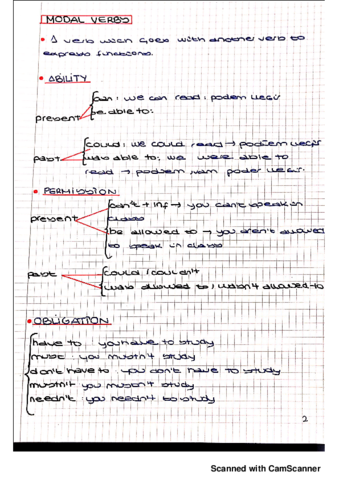 MODAL VERBS
• A verb wich goes with another verb to
express functions.
• ABILITY
present
can: we can read: podem llegir
be able to:
past
could: we could read → podíem llegir
was able to: we were able to
read → podíem vam poder llegir.
• PERMISSION
present
can't + inf → you can't speak in
classe
be allowed to → you aren't allowed
to speak in classe
past
could / couldn't
was allowed to / wasn't allowed to
• OBLIGATION
have to: you have to study
must: you mustn't study
don't have to: you don't have to study
mustn't you mustn't study
needn't: you needn't to study
2
Scanned with CamScanner